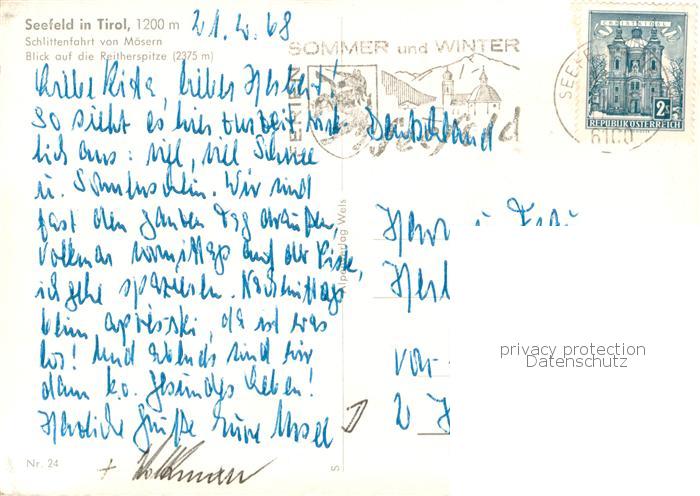 Seefeld in Tirol, 1200 m
Schlittenfahrt von Mösern
Blick auf die Reitherspitze (2375 m)
21. 2. 68
SOMMER und WINTER
FERIEN
Seefeld
SEEF
6100
CHRISTKINDL
2 S
REPUBLIK ÖSTERREICH
Liebe Rita, lieber Herbert!
So sieht es hier zur Zeit wirk-
lich aus: viel, viel Schnee
u. Sonnenschein. Wir sind
fast den ganzen Tag draußen,
Volkmar vormittags auf der Piste,
ich gehe spazieren. Nachmittags
beim après ski, da ist was
los! Und abends sind wir
dann k.o. Gesundes Leben!
Herzliche Grüße Eure Ursel
+ Volkmar
Deutschland
Herrn u. Frau
Her
2
Alpenverlag Wels
privacy protection
Datenschutz
Nr. 24
S